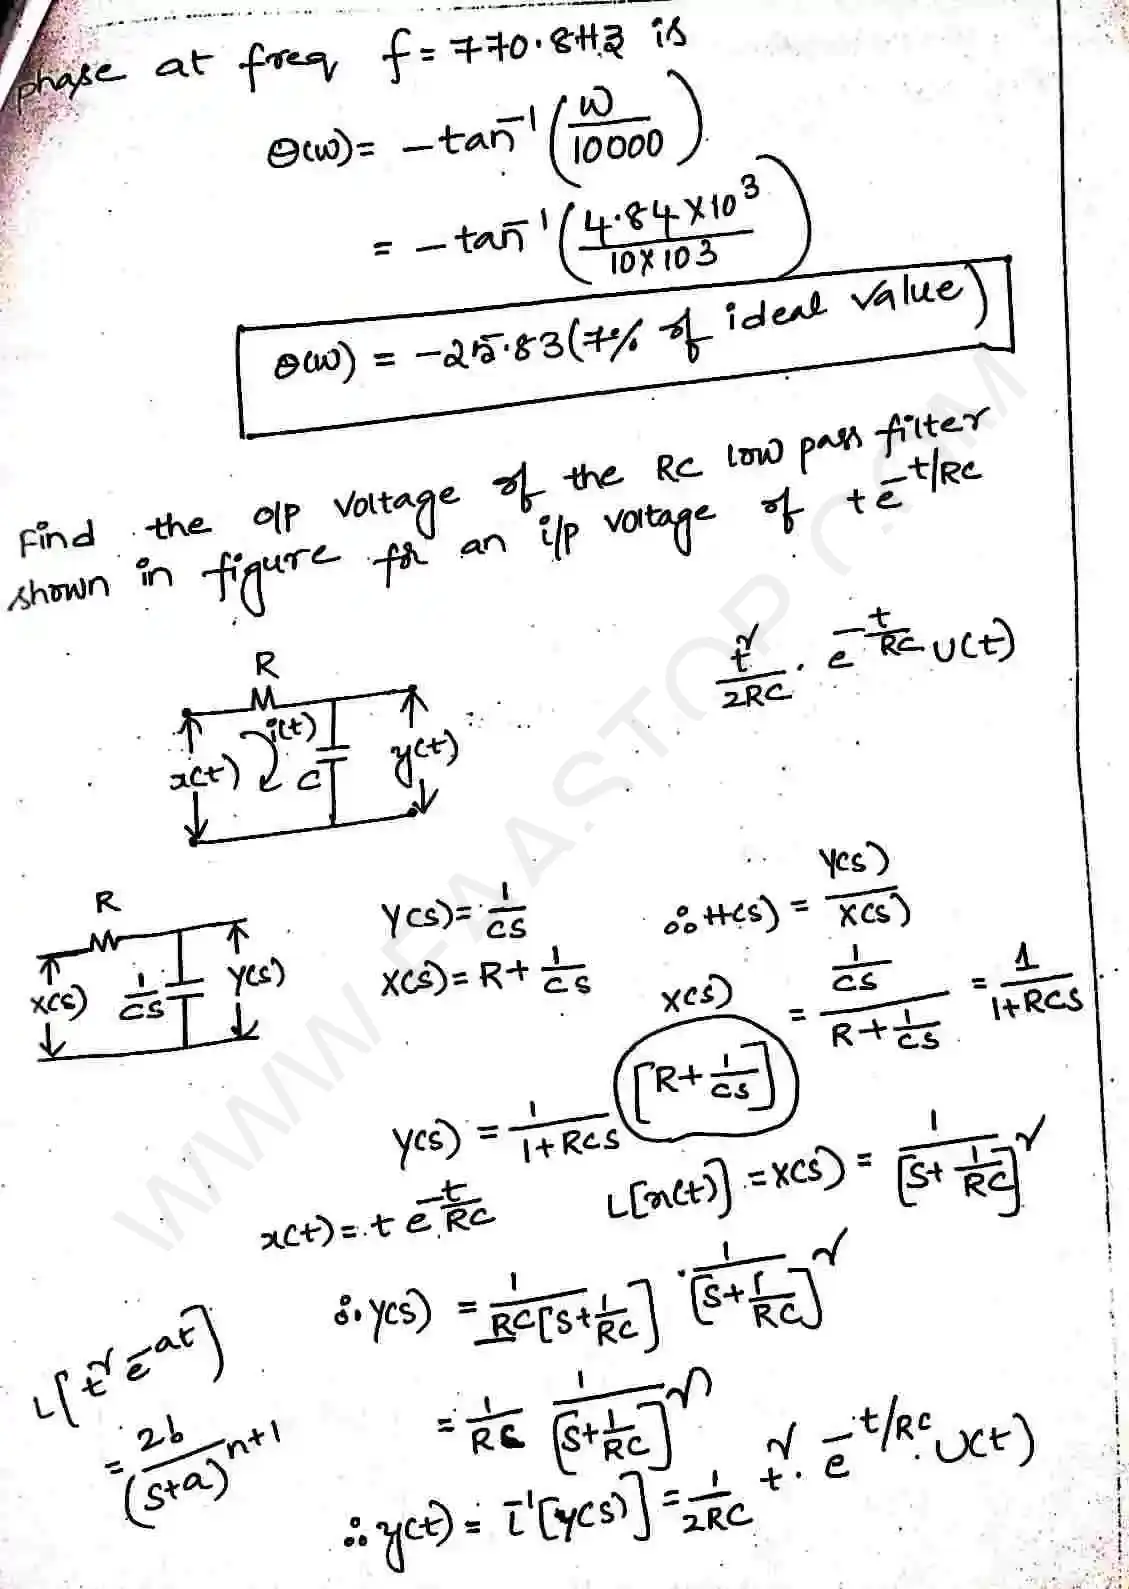 phase at freq f = 770.8Hz is
θ(ω) = -tan⁻¹(ω/10000)
= -tan⁻¹(4.84×10³/10×10³)
θ(ω) = -25.83 (7% of ideal value)
Find the o/p voltage of the RC low pass filter
shown in figure for an i/p voltage of t e^-t/RC
t²/2RC . e^-t/RC U(t)
R
i(t)
x(t)
C
y(t)
R
X(s)
1/CS
Y(s)
Y(s) = 1/CS
X(s) = R + 1/CS
∴ H(s) = Y(s)/X(s)
X(s)
= (1/CS)/(R + 1/CS) = 1/(1+RCS)
Y(s) = 1/(1+RCS) [R + 1/CS]
x(t) = t e^-t/RC
L[x(t)] = X(s) = 1/[S + 1/RC]²
∴ Y(s) = 1/(RC[S + 1/RC]) . 1/[S + 1/RC]²
L[t² e^-at]
= 2b/(s+a)^n+1
= 1/RC 1/[S + 1/RC]^n
∴ y(t) = L⁻¹[Y(s)] = 1/2RC t² . e^-t/RC . U(t)
WWW.FAASTOP.COM